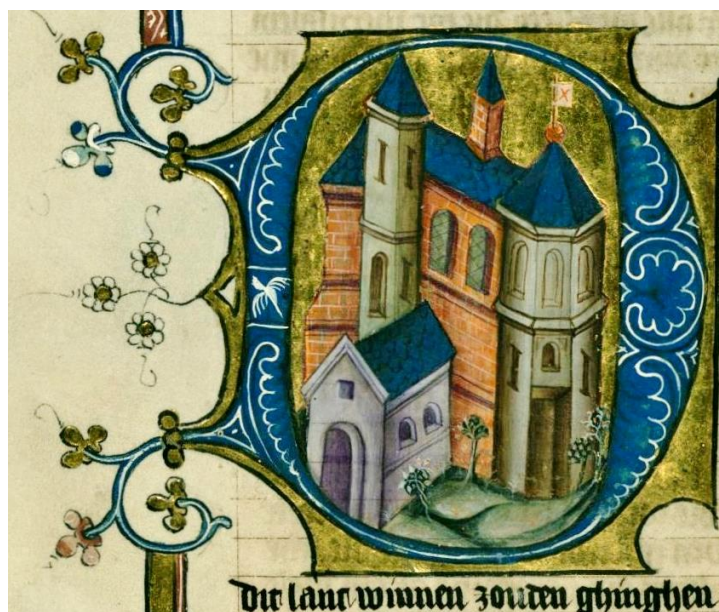 dit lant winnen zouden ghinghen